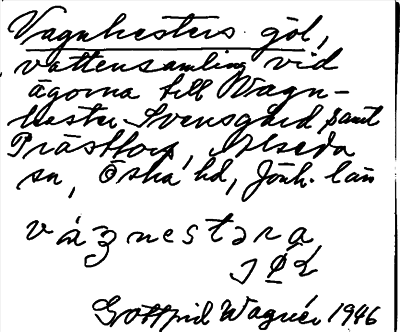 Vagnhesters göl,
vattensamling vid
ägorna till Wagn-
hester Svensgård samt
Prästtorp, Alseda
sn, Östra hd, Jönk. län
vágnestəra
Gottfrid Wagnér 1946